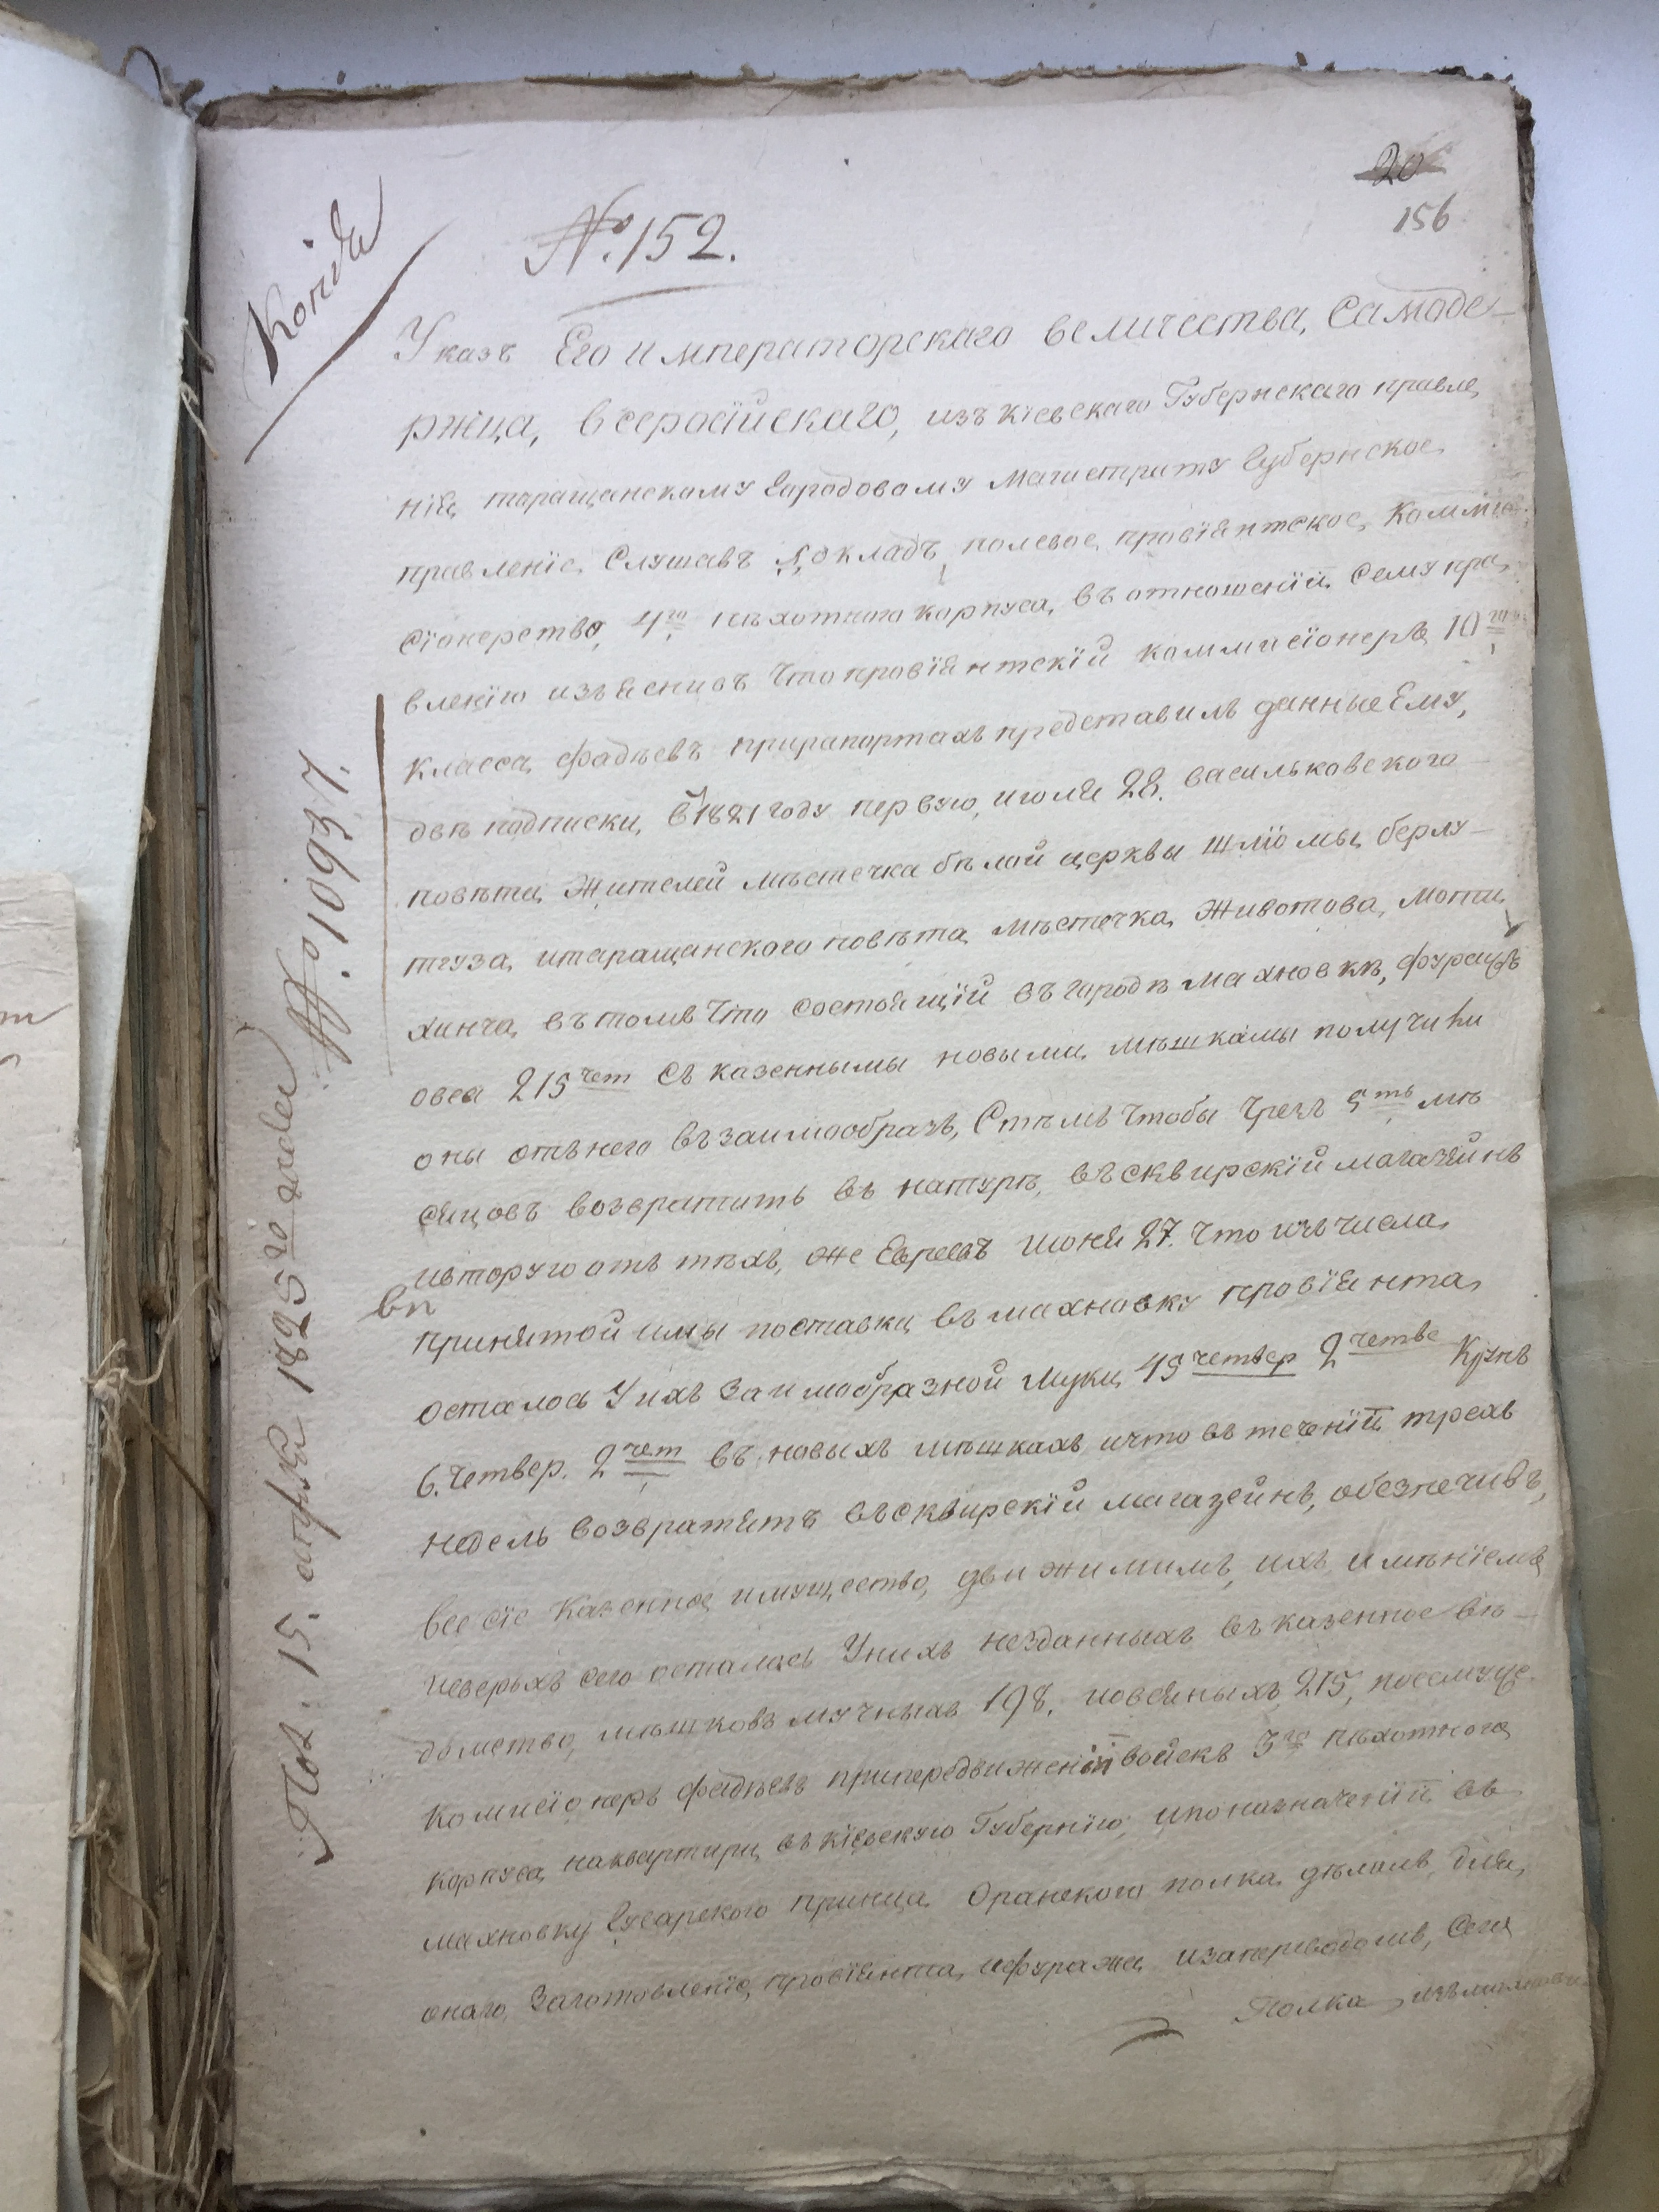 20
156
Копия
№. 152.
Указъ Его императорскаго величества, Самоде-
ржца, всеросїйскаго, изъ кіевскаго Губернскаго правле
нія, таращанскому городовому магистрату Губернское
правленїе, Слушавъ докладъ, полевое, провїянтское, Комми
сїонерство, 4го пѣхотного корпуса, въ отношенїи Сему пра
вленїю изъяснивъ что провїянтскїй коммисїонеръ 10го
класса, фадѣевъ прирапортахъ представилъ данные Ему,
двѣ подписки, в 1821 году первую, июля 28. васильковского
повѣта, жителей мѣстечка бѣлой церквы шлїомы, берлу-
тгуза, итаращанского повѣта, мѣстечка, животова, мопи
хинча, въ томъ что состоящїй въ городѣ махновкѣ, фуражъ
овса 215 чет съ казеннымы новыми, мѣшкамы получили
оны отънего възаимообразъ, Стѣмъ чтобы чрезъ 5ть мѣ
сяцовъ возвратить въ натурѣ, въ сквирскїй магазейнъ
ивторую отъ тѣхъ, же Евреевъ июня 27. что изъ числа,
вп
принятой имы поставки въ махновку провїянта,
осталось У ихъ Заимообразной муки, 45 четвер 2 четве Крупъ
6. четвер. 2 чет въ новыхъ мѣшкахъ, ичто въ теченїй трехъ
недель возвратятъ въ сквирскїй магазейнъ, обезпечивъ,
все сїе казенное имущество, движимимъ, ихъ имѣнїемъ
исверьхъ сего осталось Унихъ незданныхъ въ казенное вѣ-
домство, мѣшковъ мучныхъ 198. иовсяныхъ 215, посему
комисїонеръ фадѣевъ припередвиженїи войскъ 3го пѣхотного
корпуса, наквартиры, въ кїевскую Губернїю, ипоназначенїй въ
махновку Гусарского принца Оранского полка, дѣломъ, для,
онаго, Заготовленїе, провїянта, ифуража изапереводомъ, Сего
Полка, изъ махновки
Пол. 15. апрѣля 1825го года №. 10937.